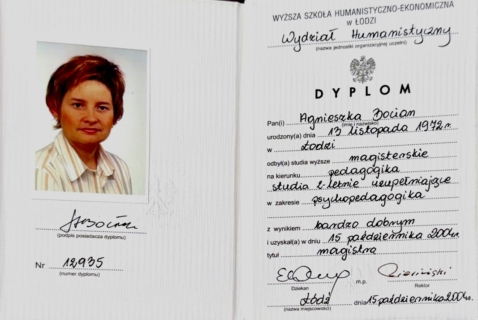 (podpis posiadacza dyplomu)
Nr 12935
(numer dyplomu)
WYŻSZA SZKOŁA HUMANISTYCZNO-EKONOMICZNA
w ŁODZI
Wydział Humanistyczny
(nazwa jednostki organizacyjnej uczelni)
DYPLOM
Pan(i) Agnieszka Bocian
(imię i nazwisko)
urodzony(a) dnia 13 listopada 1972 r.
w Łodzi
odbył(a) studia wyższe magisterskie
na kierunku pedagogika
studia 2-letnie uzupełniające
w zakresie psychopedagogika
z wynikiem bardzo dobrym
i uzyskał(a) w dniu 15 października 2004r.
tytuł magistra
Dziekan m.p. Rektor
Łódź dnia 15 października 2004r.
(nazwa miejscowości)